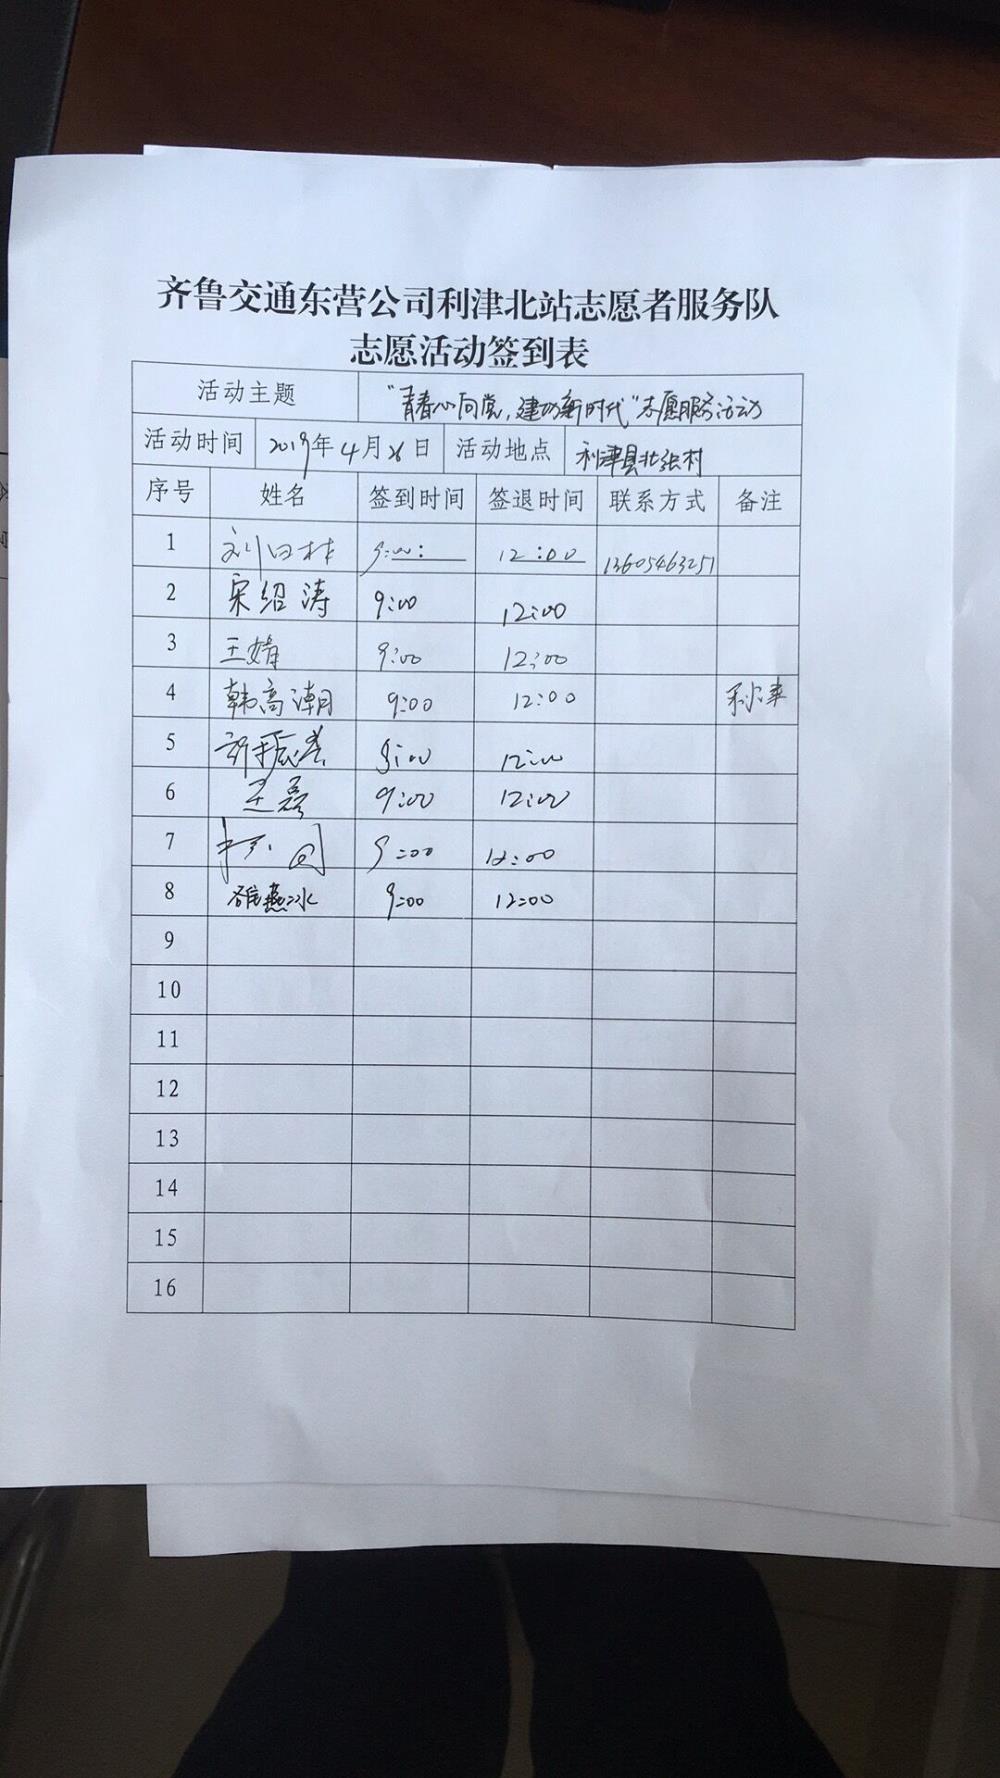 齐鲁交通东营公司利津北站志愿者服务队
志愿活动签到表
活动主题 "青春心向党,建功新时代"志愿服务活动
活动时间 2019年4月26日 活动地点 利津县北张村
序号 姓名 签到时间 签退时间 联系方式 备注
1 9:00: 12:00 13605463251
2 宋绍涛 9:00 12:00
3 王婧 9:00 12:00
4 韩高潮 9:00 12:00
5 9:00 12:00
6 王磊 9:00 12:00
7 9:00 12:00
8 燕冰 9:00 12:00
9
10
11
12
13
14
15
16